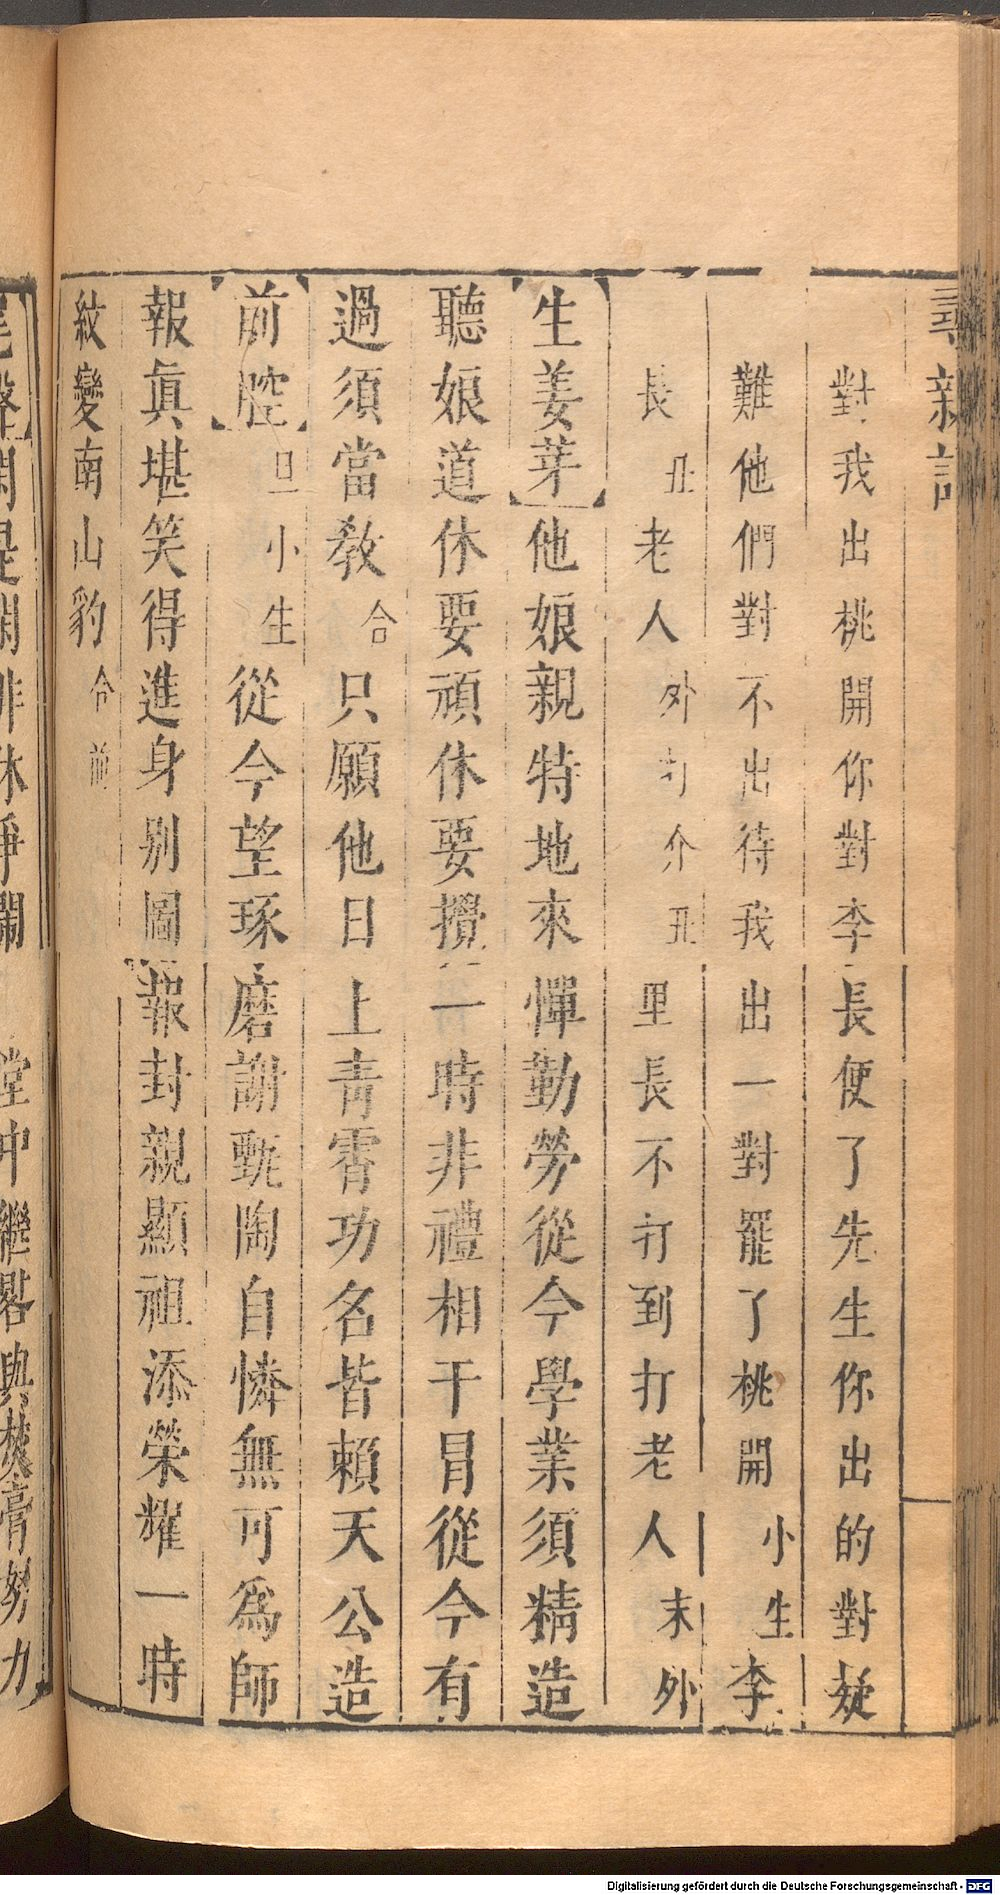 尋親記
對我出桃開你對李長便了先生你出的對疑
難他們對不出待我出一對罷了桃開小生李
長丑老人外打介丑里長不打到打老人末外
【生姜芽】他娘親特地來憚勤勞從今學業須精造
聽娘道休要頑休要攪一時非禮相干冒從今有
過須當教合只願他日上青霄功名皆賴天公造
【前腔】旦小生從今望琢磨謝甄陶自憐無可為師
報真堪笑得進身別圖報封親顯祖添榮耀一時
紋變南山豹合前
尾聲閑是閑非休爭鬧 堂中繼晷與焚膏努力
Digitalisierung gefördert durch die Deutsche Forschungsgemeinschaft - DFG